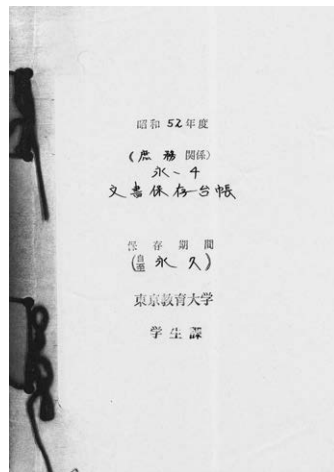 昭和 52 年度
(庶務 関係)
永-4
文書保存台帳
保存期間
(自至 永久)
東京教育大学
学生課